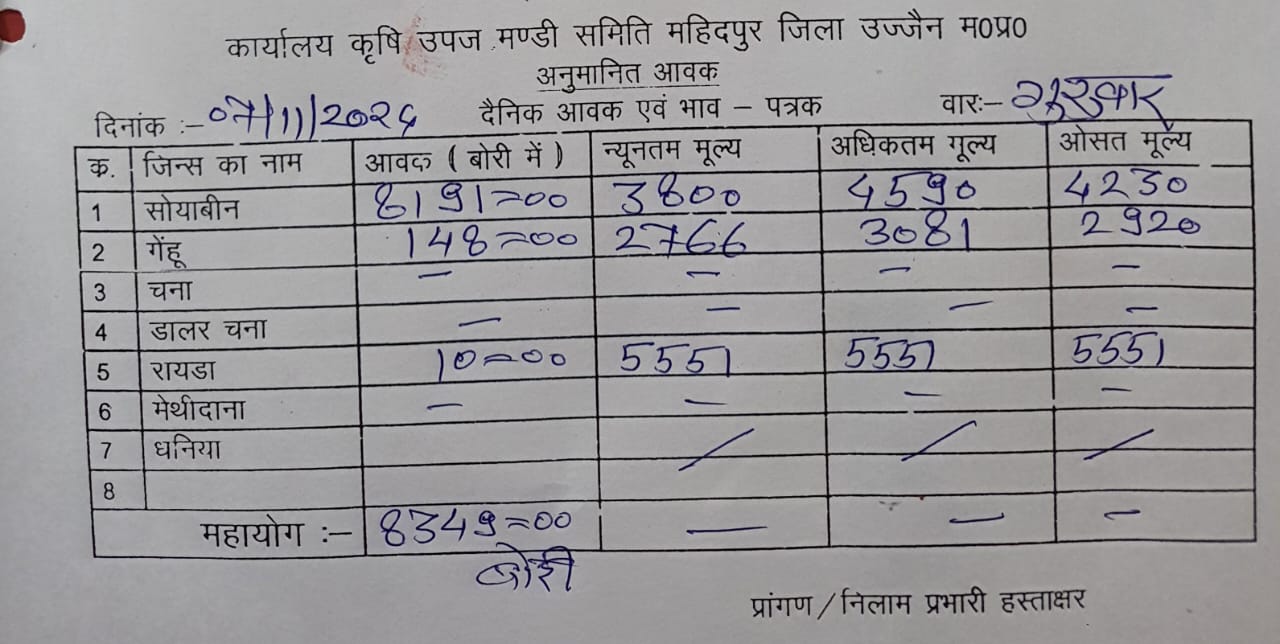 कार्यालय कृषि उपज मण्डी समिति महिदपुर जिला उज्जैन म0प्र0
अनुमानित आवक
दिनांक :- 07/11/2024 दैनिक आवक एवं भाव – पत्रक वारः- गुरुवार
क. जिन्स का नाम आवक ( बोरी में ) न्यूनतम मूल्य अधिकतम मूल्य ओसत मूल्य
1 सोयाबीन 8191=00 3800 4590 4230
2 गेंहू 148=00 2766 3081 2920
3 चना – – – –
4 डालर चना – – – –
5 रायडा 10=00 5551 5551 5551
6 मेथीदाना – – – –
7 धनिया / / /
8
महायोग :- 8349=00 – – –
बोरी
प्रांगण / निलाम प्रभारी हस्ताक्षर